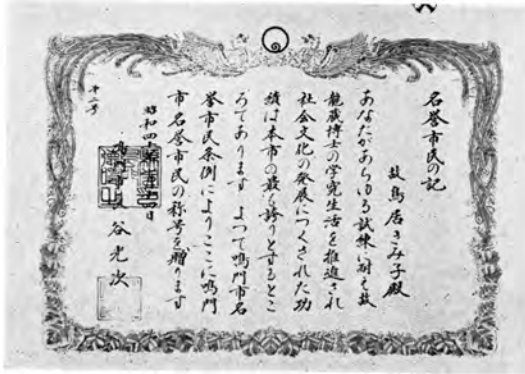 名誉市民の記
故鳥居きみ子殿
あなたがあらゆる試練に耐え故
龍蔵博士の学究生活を推進され
社会文化の発展につくされた功
績は本市の最も誇りとするとこ
ろであります よつて鳴門市名
誉市民条例によりここに鳴門
市名誉市民の称号を贈ります
昭和四十
日
鳴門市長 谷光次
第二号